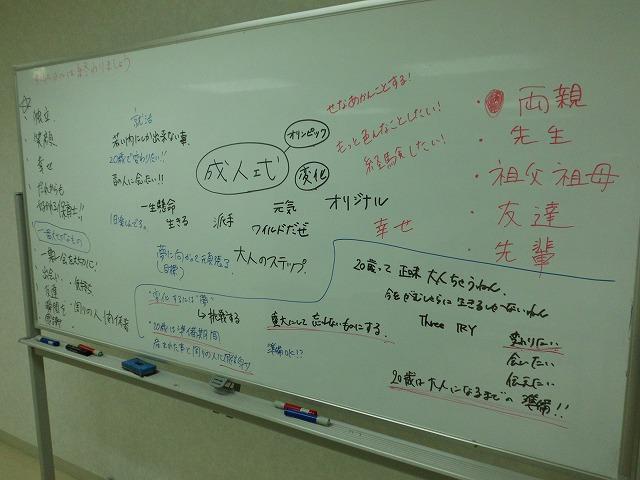 終わりましょう
独立
笑顔
幸せ
だれからも
好かれる保育士!!
一番大切なもの
友達
感謝
就活
若い内にしか出来ない事
20歳で変わりたい!!
会いたい!!
一生懸命
生きる
派手
元気
ワイルドだぜ
オリジナル
成人式
オリンピック
変化
せなあかんことする!
もっと色んなことしたい!
経験したい!
幸せ
・両親
・先生
・祖父祖母
・友達
・先輩
夢に向かって
(目標)
大人のステップ
"変化するには"夢"
→挑戦する
"20歳は準備期間
重大にして忘れないものにする
準備OK!?
20歳って正味大人ちゃうねん
今をがむしゃらに生きるしかないねん
Three TRY
変わりたい
会いたい
伝えたい
20歳は大人になるまでの準備!!